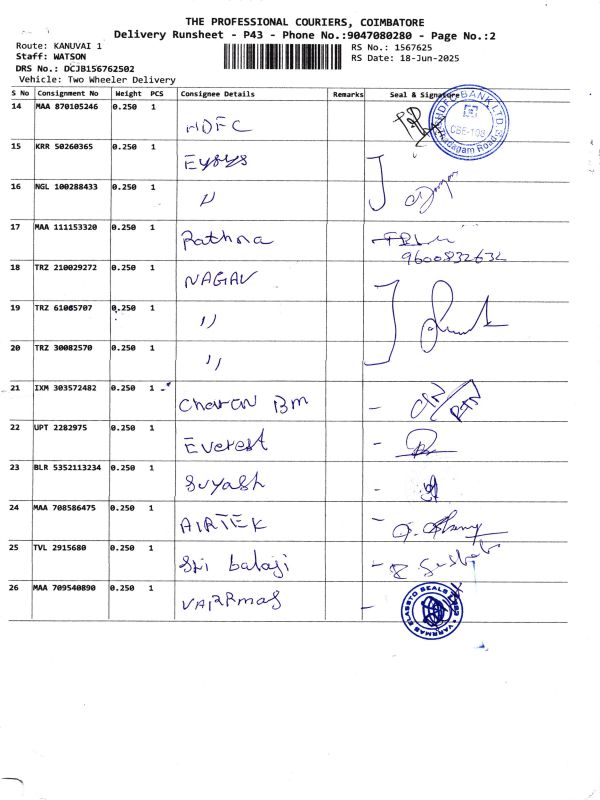 THE PROFESSIONAL COURIERS, COIMBATORE
Delivery Runsheet - P43 - Phone No.:9047080280 - Page No.:2
Route: KANUVAI 1
RS No.: 1567625
Staff: WATSON
RS Date: 18-Jun-2025
DRS No.: DCJB156762502
Vehicle: Two Wheeler Delivery
S No Consignment No Weight PCS Consignee Details Remarks Seal & Signature
14 MAA 870105246 0.250 1 HDFC
HDFC BANK LTD.
CBE-108
15 KRR 50260365 0.250 1 Eysys
16 NGL 100288433 0.250 1 "
17 MAA 111153320 0.250 1 Rathna
9600832632
18 TRZ 210029272 0.250 1 NAGAV
19 TRZ 61085707 0.250 1 "
20 TRZ 30082570 0.250 1 "
21 IXM 303572482 0.250 1 Charan Bm
22 UPT 2282975 0.250 1 Everest
23 BLR 5352113234 0.250 1 Suyash
24 MAA 708586475 0.250 1 AIRTEK
25 TVL 2915680 0.250 1 Sri balaji
26 MAA 709540890 0.250 1 VARRmas
VARMAS ELASTO SEALS